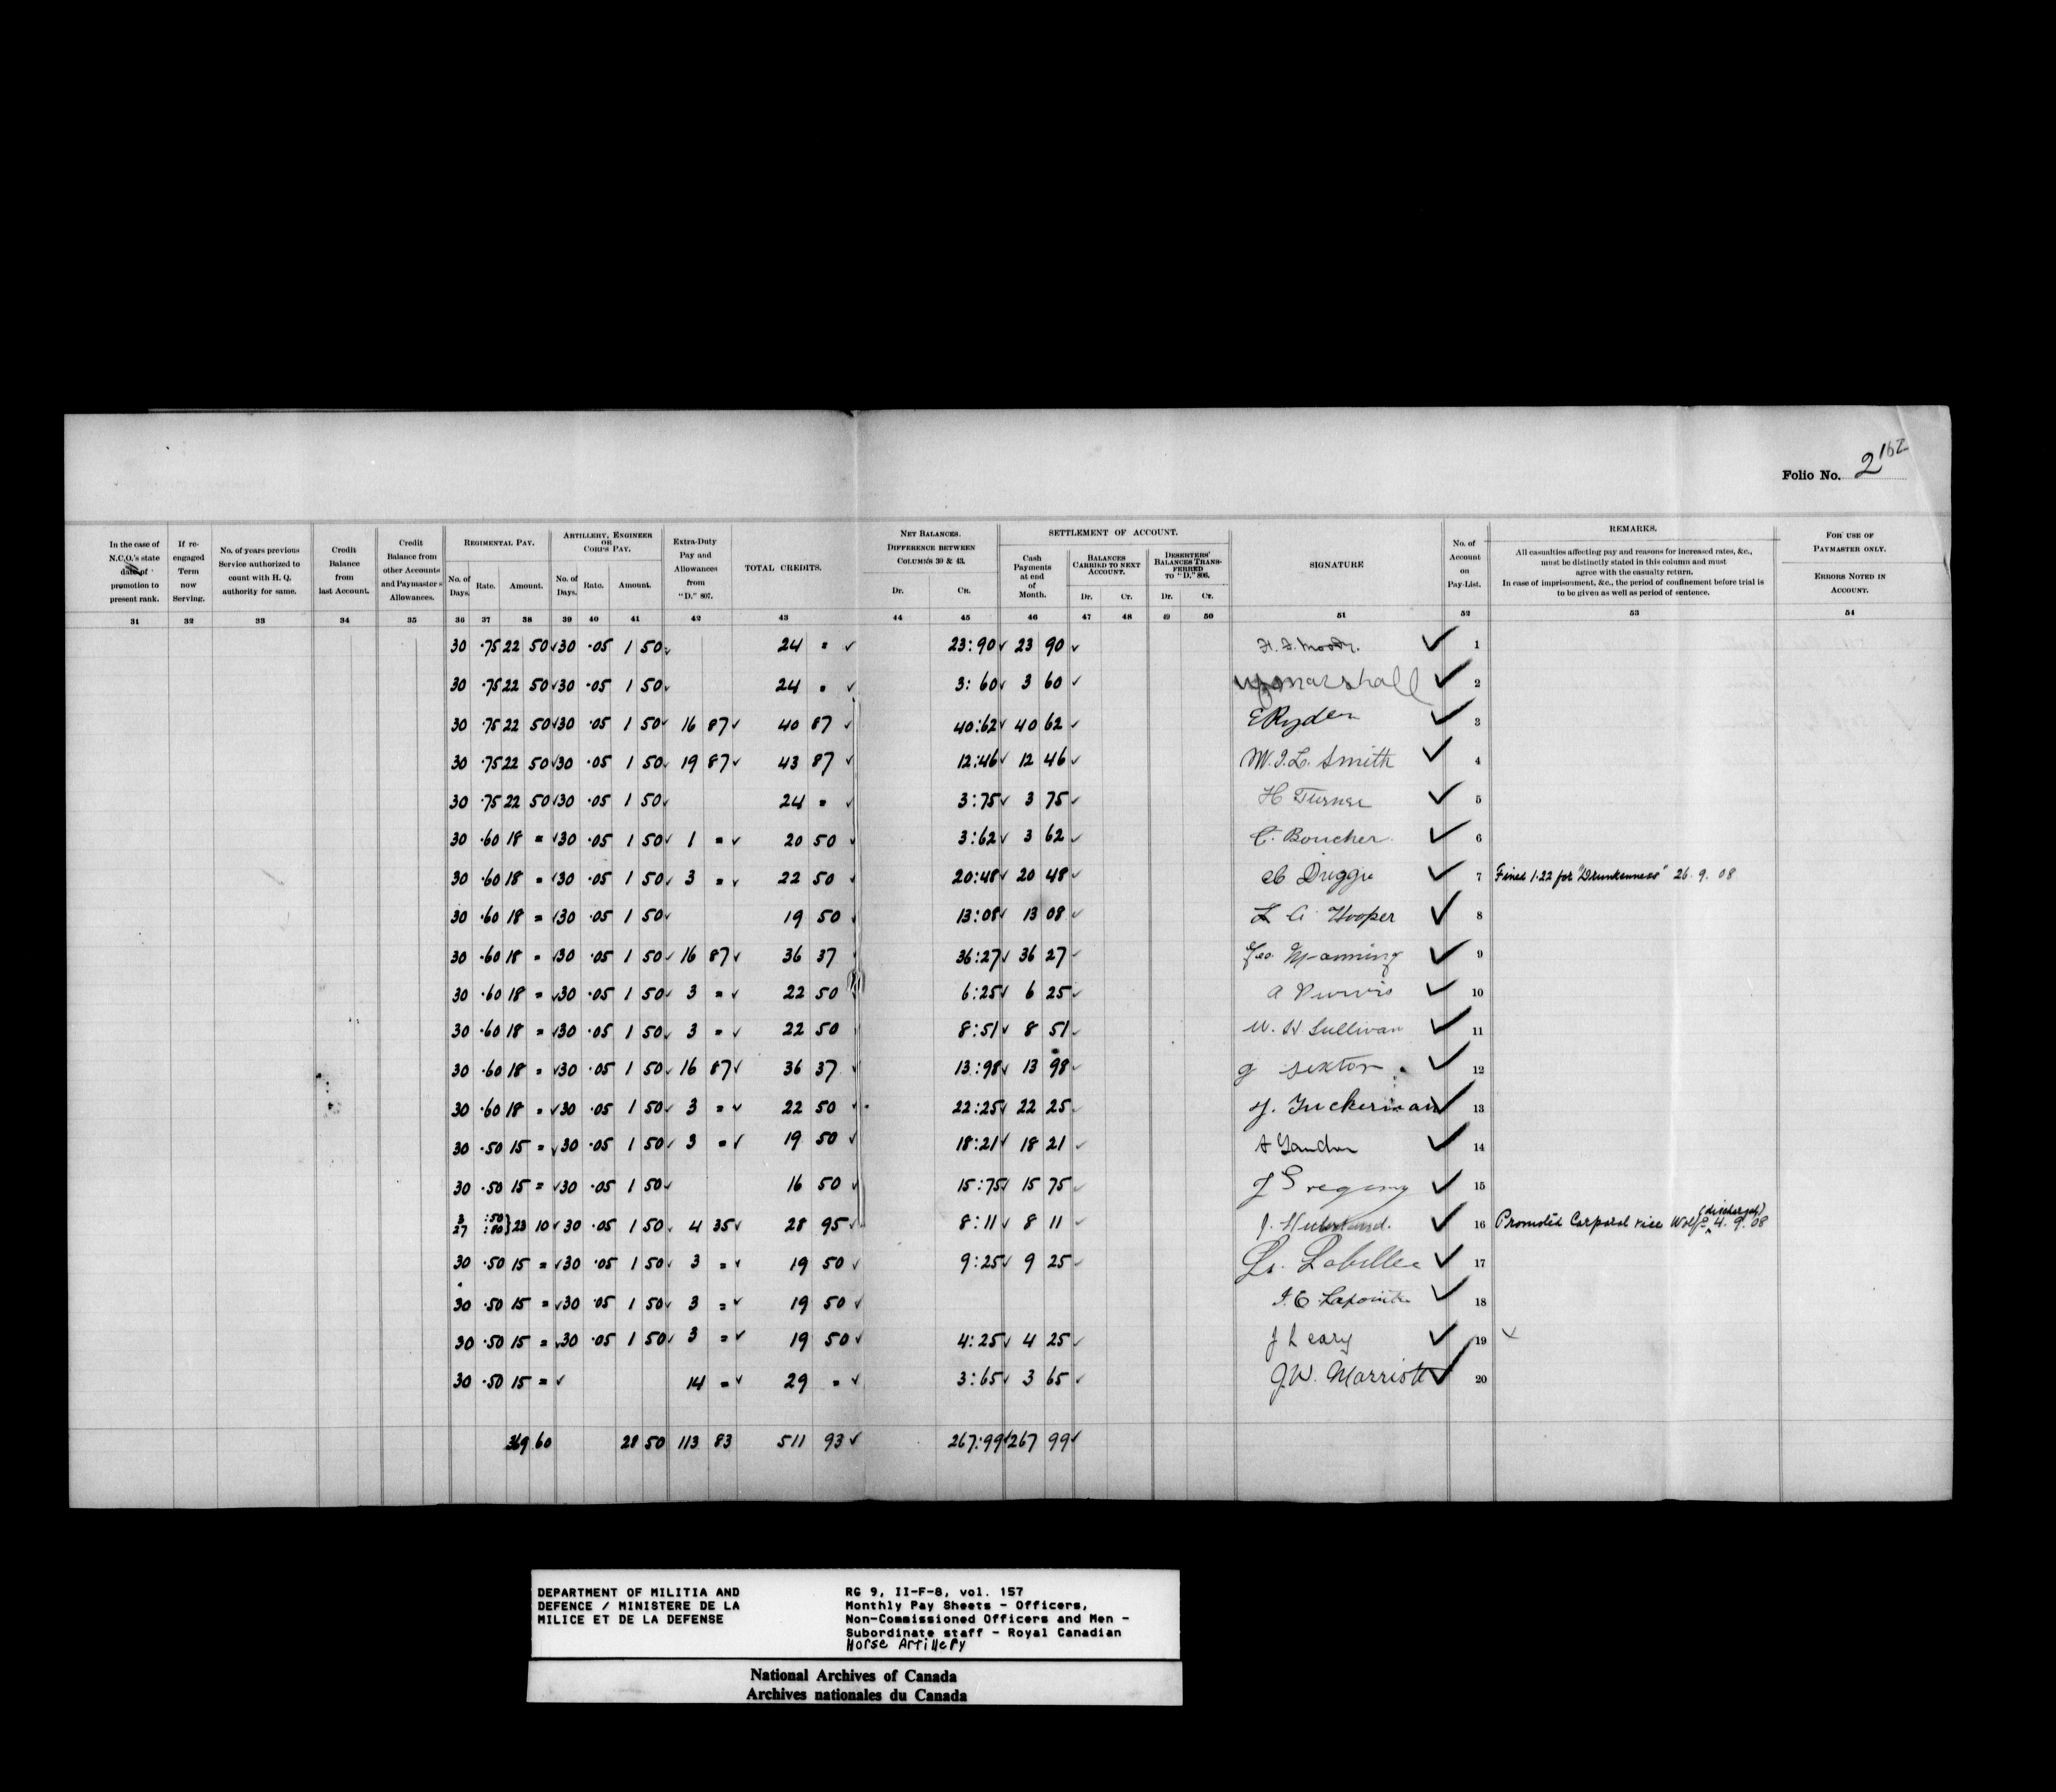 2 162
Folio No.
In the case of N.C.O.'s state date of promotion to present rank.
If re-engaged Term now Serving.
No. of years previous Service authorized to count with H. Q. authority for same.
Credit Balance from last Account.
Credit Balance from other Accounts and Paymaster's Allowances.
REGIMENTAL PAY.
No. of Days. Rate. Amount.
ARTILLERY, ENGINEER OR CORPS PAY.
No. of Days. Rate. Amount.
Extra-Duty Pay and Allowances from "D." 807.
TOTAL CREDITS.
NET BALANCES. DIFFERENCE BETWEEN COLUMNS 30 & 43.
Dr. Cr.
SETTLEMENT OF ACCOUNT.
Cash Payments at end of Month.
BALANCES CARRIED TO NEXT ACCOUNT.
Dr. Cr.
DESERTERS' BALANCES TRANSFERRED TO "D." 806.
Dr. Cr.
SIGNATURE
No. of Account on Pay-List.
REMARKS.
All casualties affecting pay and reasons for increased rates, &c., must be distinctly stated in this column and must agree with the casualty return.
In case of imprisonment, &c., the period of confinement before trial is to be given as well as period of sentence.
FOR USE OF PAYMASTER ONLY.
ERRORS NOTED IN ACCOUNT.
31 32 33 34 35 36 37 38 39 40 41 42 43 44 45 46 47 48 49 50 51 52 53 54
30 .75 22 50 30 .05 1 50 24 = 23:90 23 90 Moody. 1
30 .75 22 50 30 .05 1 50 24 = 3:60 3 60 Marshall 2
30 .75 22 50 30 .05 1 50 16 87 40 87 40:62 40 62 E Ryder 3
30 .75 22 50 30 .05 1 50 19 87 43 87 12:46 12 46 Smith 4
30 .75 22 50 30 .05 1 50 24 = 3:75 3 75 H Turner 5
30 .60 18 = 30 .05 1 50 1 = 20 50 3:62 3 62 Boucher. 6
30 .60 18 = 30 .05 1 50 3 = 22 50 20:48 20 48 7 Fined 1.22 for "Drunkenness" 26. 9. 08
30 .60 18 = 30 .05 1 50 19 50 13:08 13 08 Hooper 8
30 .60 18 = 30 .05 1 50 16 87 36 37 36:27 36 27 Geo. Manning 9
30 .60 18 = 30 .05 1 50 3 = 22 50 6:25 6 25 A Purvis 10
30 .60 18 = 30 .05 1 50 3 = 22 50 8:51 8 51 Sullivan 11
30 .60 18 = 30 .05 1 50 16 87 36 37 13:98 13 98 G Sexton 12
30 .60 18 = 30 .05 1 50 3 = 22 50 22:25 22 25 Tuckerman 13
30 .50 15 = 30 .05 1 50 3 = 19 50 18:21 18 21 14
30 .50 15 = 30 .05 1 50 16 50 15:75 15 75 J Gregory 15
3 27 :50 :80 } 23 10 30 .05 1 50 4 35 28 95 8:11 8 11 16 Promoted Corporal vice Wolfe (discharged) 4. 9. 08
30 .50 15 = 30 .05 1 50 3 = 19 50 9:25 9 25 Labellee 17
30 .50 15 = 30 .05 1 50 3 = 19 50 Lapointe 18
30 .50 15 = 30 .05 1 50 3 = 19 50 4:25 4 25 J Leary 19
30 .50 15 = 14 = 29 = 3:65 3 65 J.W. Marriott 20
369 60 28 50 113 83 511 93 267:99 267 99
DEPARTMENT OF MILITIA AND
DEFENCE / MINISTERE DE LA
MILICE ET DE LA DEFENSE
RG 9, II-F-8, vol. 157
Monthly Pay Sheets - Officers,
Non-Commissioned Officers and Men -
Subordinate staff - Royal Canadian
Horse Artillery
National Archives of Canada
Archives nationales du Canada